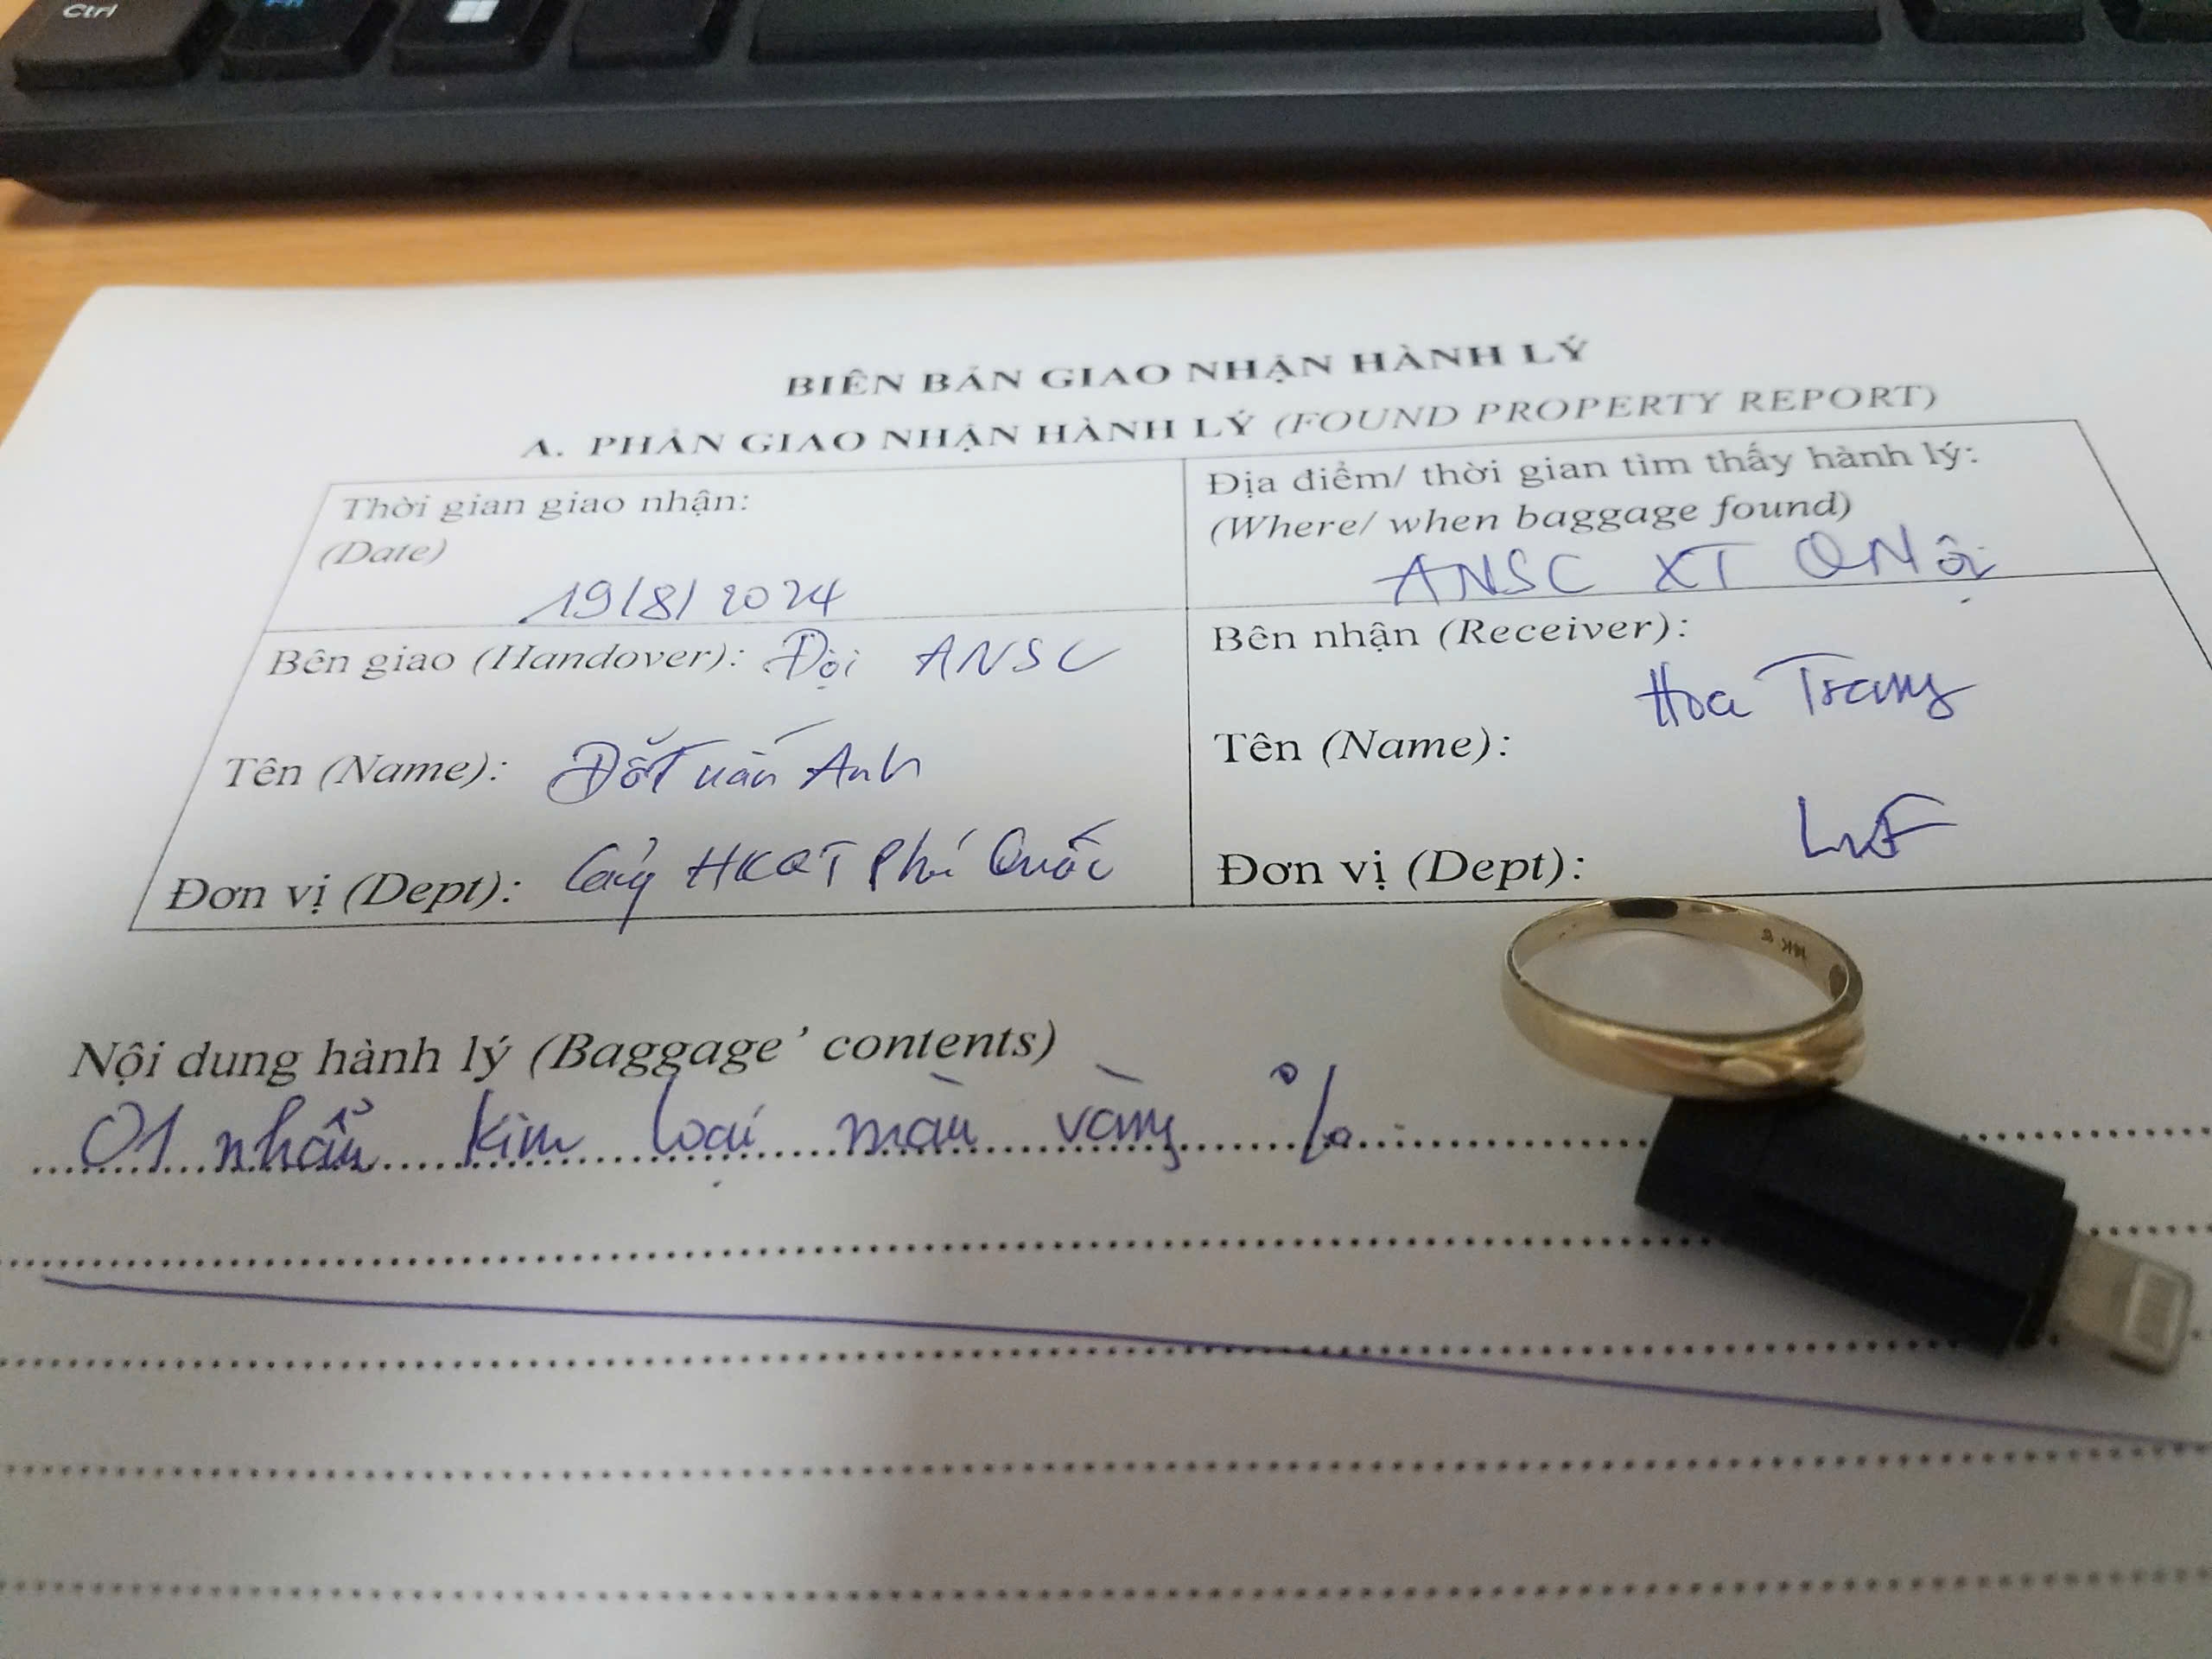 Ctrl
Fn
BIÊN BẢN GIAO NHẬN HÀNH LÝ
A. PHẦN GIAO NHẬN HÀNH LÝ (FOUND PROPERTY REPORT)
Thời gian giao nhận:
(Date)
19/8/2024
Địa điểm/ thời gian tìm thấy hành lý:
(Where/ when baggage found)
ANSC XT QNội
Bên giao (Handover): Đội ANSC
Tên (Name): Đỗ Tuấn Anh
Đơn vị (Dept): Cảng HKQT Phú Quốc
Bên nhận (Receiver):
Hoa Trang
Tên (Name):
Đơn vị (Dept):
14K
Nội dung hành lý (Baggage’ contents)
01 nhẫn kim loại màu vàng %